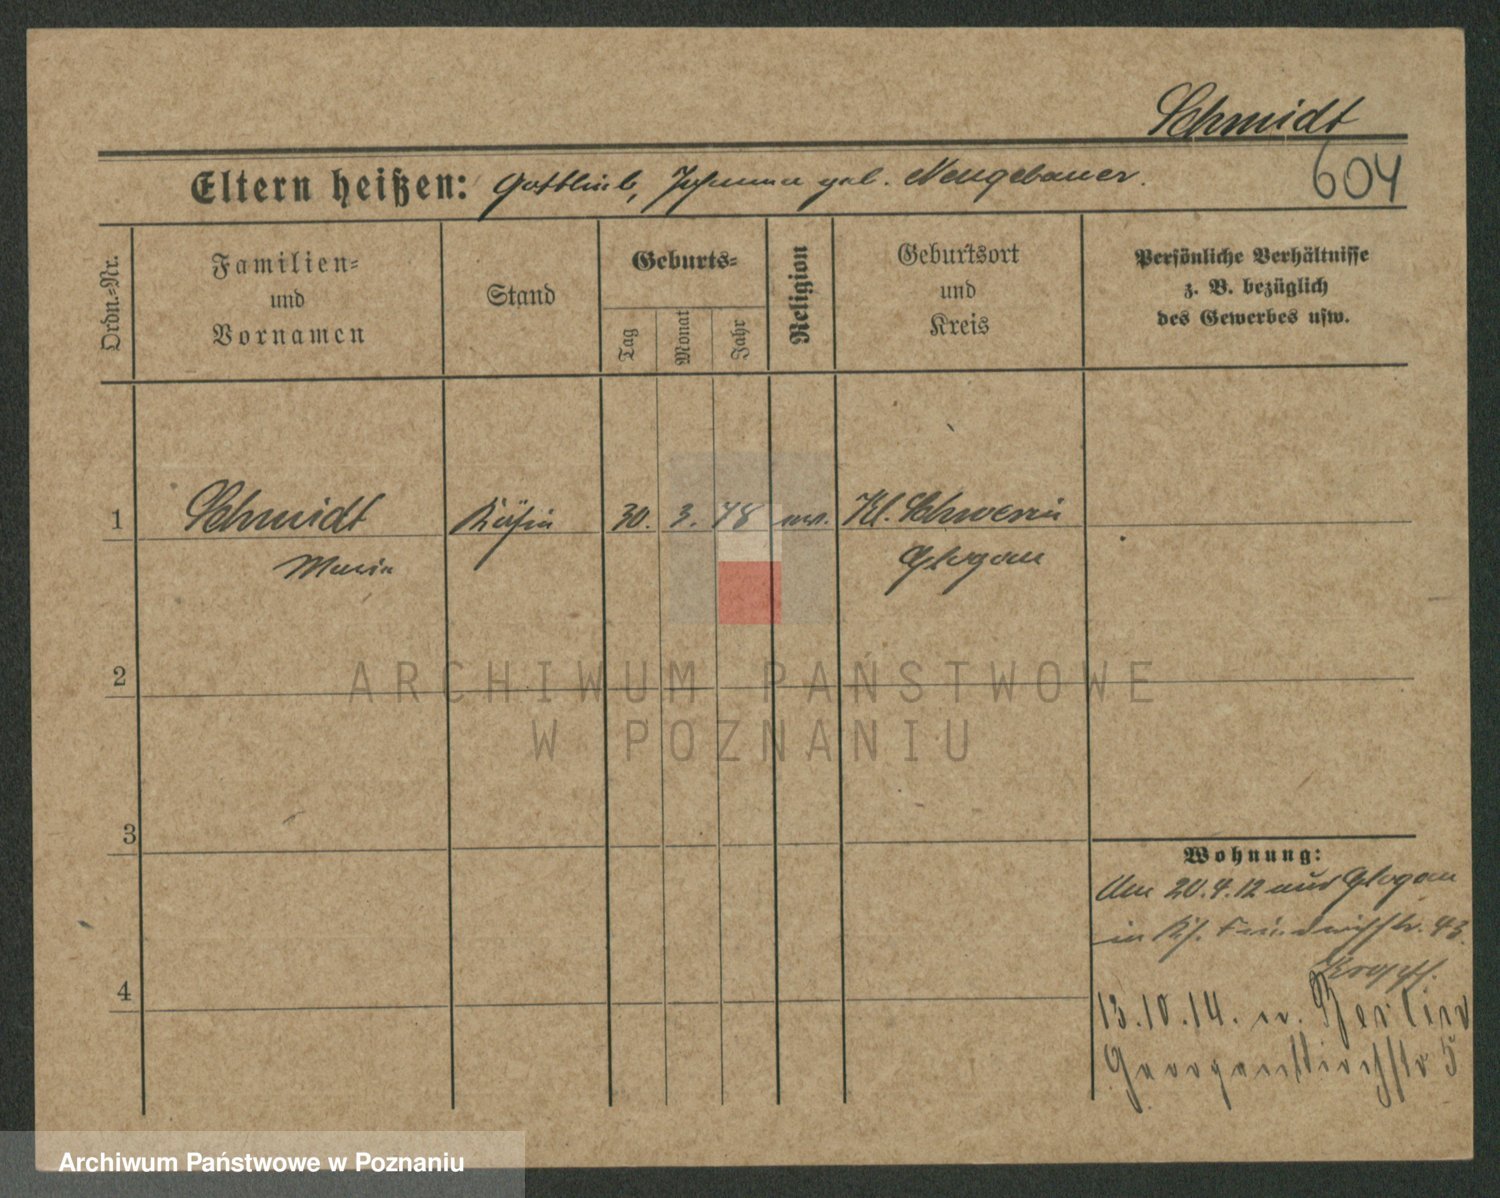 Schmidt
604
Eltern heißen: Gottlieb, Johanna geb. Neugebauer.
Ordn.-Nr.
Familien-
und
Vornamen
Stand
Geburts-
Tag
Monat
Jahr
Religion
Geburtsort
und
Kreis
Persönliche Verhältnisse
z. B. bezüglich
des Gewerbes usw.
1 Schmidt Köchin 30. 3. 78 ev. Kl. Schwerin
Maria Glogau
2
ARCHIWUM PAŃSTWOWE
W POZNANIU
3
Wohnung:
Am 20.4.12 aus Glogau
in Friedrichstr. 43.
4
13.10.14. n. Berlin
Georgenkirchstr 5
Archiwum Państwowe w Poznaniu